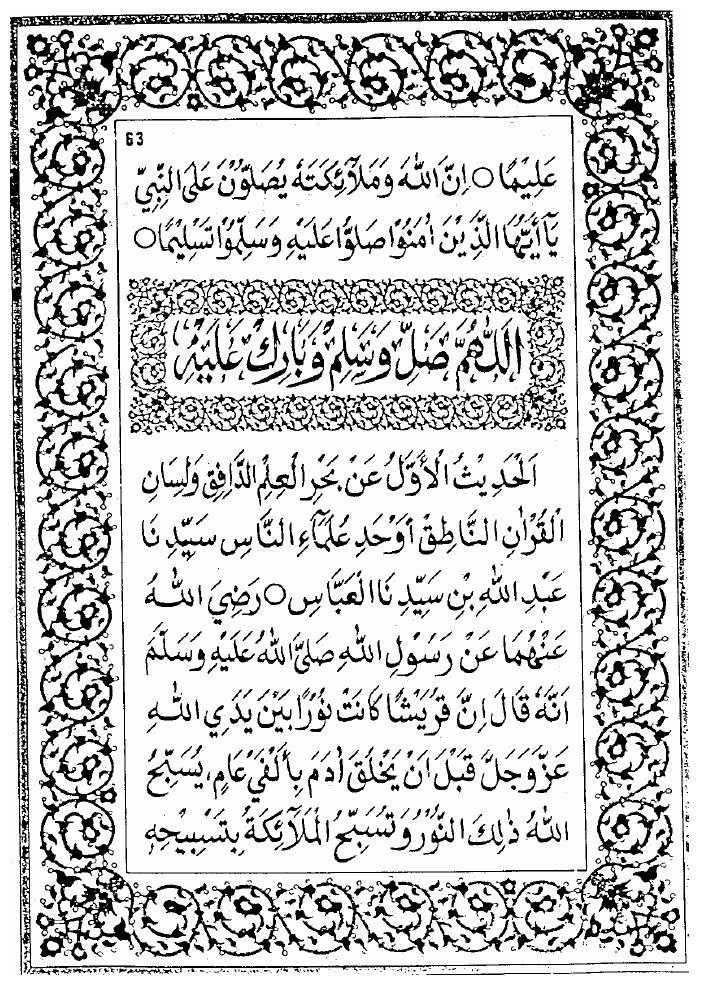 63
عَلِيْمًا ○ اِنَّ اللّٰهَ وَمَلَآئِكَتَهٗ يُصَلُّوْنَ عَلَى النَّبِيِّ
يَآ أَيُّهَا الَّذِيْنَ اٰمَنُوْا صَلُّوْا عَلَيْهِ وَسَلِّمُوْا تَسْلِيْمًا ○
اَللّٰهُمَّ صَلِّ وَسَلِّمْ وَبَارِكْ عَلَيْهِ
اَلْحَدِيْثُ الْأَوَّلُ عَنْ بَحْرِ الْعِلْمِ الدَّافِقِ وَلِسَانِ
الْقُرْاٰنِ النَّاطِقْ أَوْحَدِ عُلَمَآءِ النَّاسِ سَيِّدِنَا
عَبْدِ اللّٰهِ بْنِ سَيِّدِنَا الْعَبَّاسِ ○ رَضِيَ اللّٰهُ
عَنْهُمَا عَنْ رَسُوْلِ اللّٰهِ صَلَّى اللّٰهُ عَلَيْهِ وَسَلَّمَ
اَنَّهٗ قَالَ اِنَّ قُرَيْشًا كَانَتْ نُوْرًا بَيْنَ يَدَيِ اللّٰهِ
عَزَّوَجَلَّ قَبْلَ اَنْ يَخْلُقَ اٰدَمَ بِأَلْفَيْ عَامٍ، يُسَبِّحُ
اللّٰهُ ذٰلِكَ النُّوْرُ وَتُسَبِّحُ الْمَلَآئِكَةُ بِتَسْبِيْحِهٖ